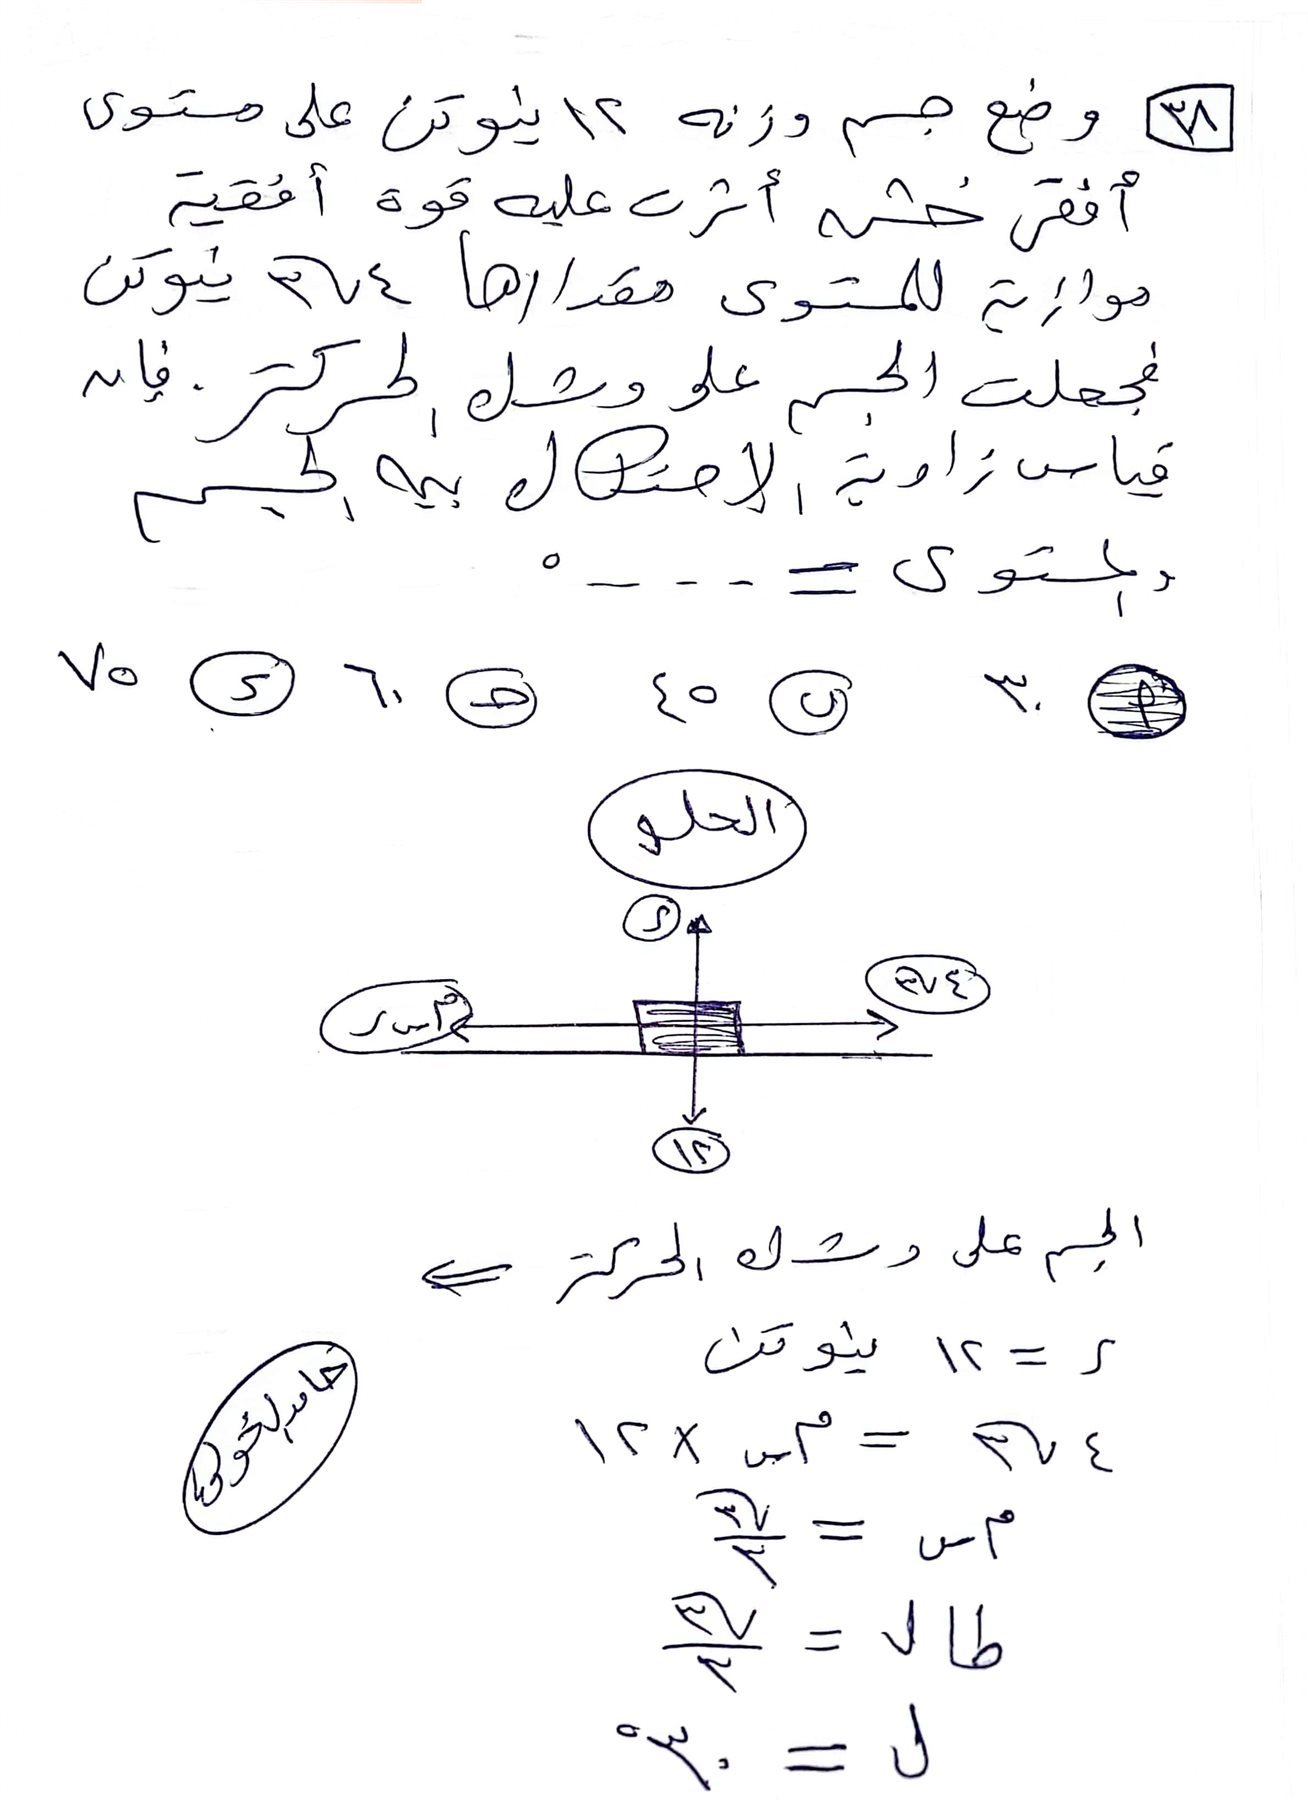 ٣٨ وضع جسم وزنه ١٢ نيوتن على مستوى
أفقى خشن أثرت عليه قوة أفقية
موازية للمستوى مقدارها ٤√٣ نيوتن
فجعلت الجسم على وشك الحركة . فإن
قياس زاوية الاحتكاك بين الجسم
والمستوى = - - - - °
أ ٣٠ ب ٤٥ حـ ٦٠ ء ٧٥
الحلو
ر
٤√٣
م س ر
١٢
الجسم على وشك الحركة ⇐
ر = ١٢ نيوتن
٤√٣ = م س × ١٢
م س = √٣/٣
طا ل = √٣/٣
ل = ٣٠°